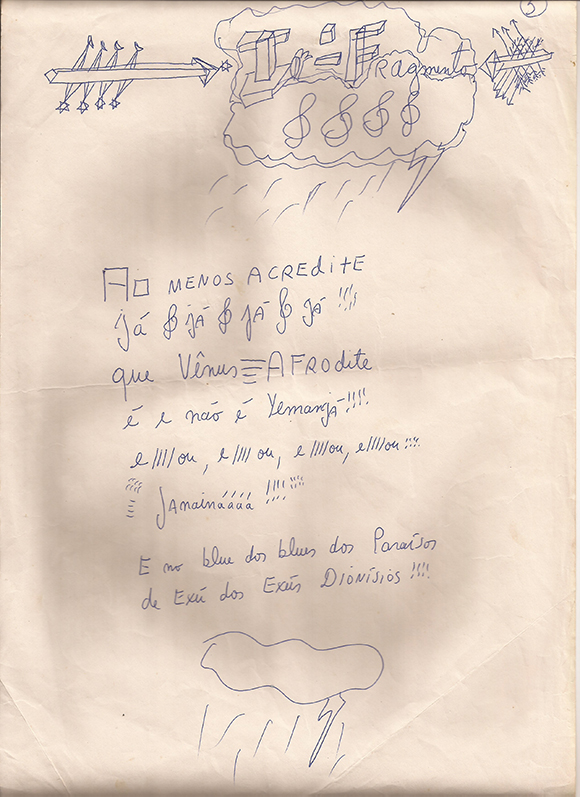 Iº = Fragmento
AO MENOS ACREditE
já já já já !!!!
que Vênus ≡ AFROdite
é e não é Yemanjá!!!!
e////ou, e////ou, e////ou, e////ou !!!!
JANAináááá !!!!
E no blue dos blues dos Paraísos
de Exú dos Exús DIONÍSIOS !!!!